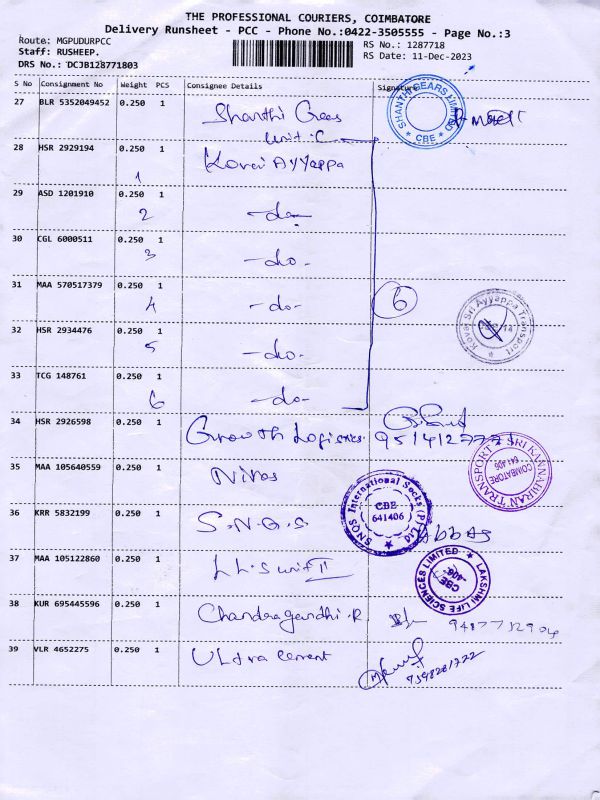 THE PROFESSIONAL COURIERS, COIMBATORE
Delivery Runsheet - PCC - Phone No.:0422-3505555 - Page No.:3
Route: MGPUDURPCC
Staff: RUSHEEP.
DRS No.: DCJB128771803
RS No.: 1287718
RS Date: 11-Dec-2023
S No Consignment No Weight PCS Consignee Details Signature
27 BLR 5352049452 0.250 1 Shanthi Gears
Unit:C
SHANTHI GEARS Limited * CBE *
28 HSR 2929194 0.250 1 Kovai Ayyappa
1
29 ASD 1201910 0.250 1 -do-
2
30 CGL 6000511 0.250 1 -do-
3
31 MAA 570517379 0.250 1 -do- 6
4
Kovai Sri Ayyappa Transport
32 HSR 2934476 0.250 1 -do-
5
33 TCG 148761 0.250 1 -do-
6
34 HSR 2926598 0.250 1 Growth Logistics
SRI KANNABIRAN TRANSPORT COIMBATORE 641 406
35 MAA 105640559 0.250 1
36 KRR 5832199 0.250 1 S.N.Q.S.
SNQS International Socks (P) Ltd CBE 641406
Abbas
37 MAA 105122860 0.250 1 L.L.S Unit II
LAKSHMI LIFE SCIENCES LIMITED CBE -406
38 KUR 695445596 0.250 1 Chandragandhi.R
39 VLR 4652275 0.250 1 Ultra cement
9598261722